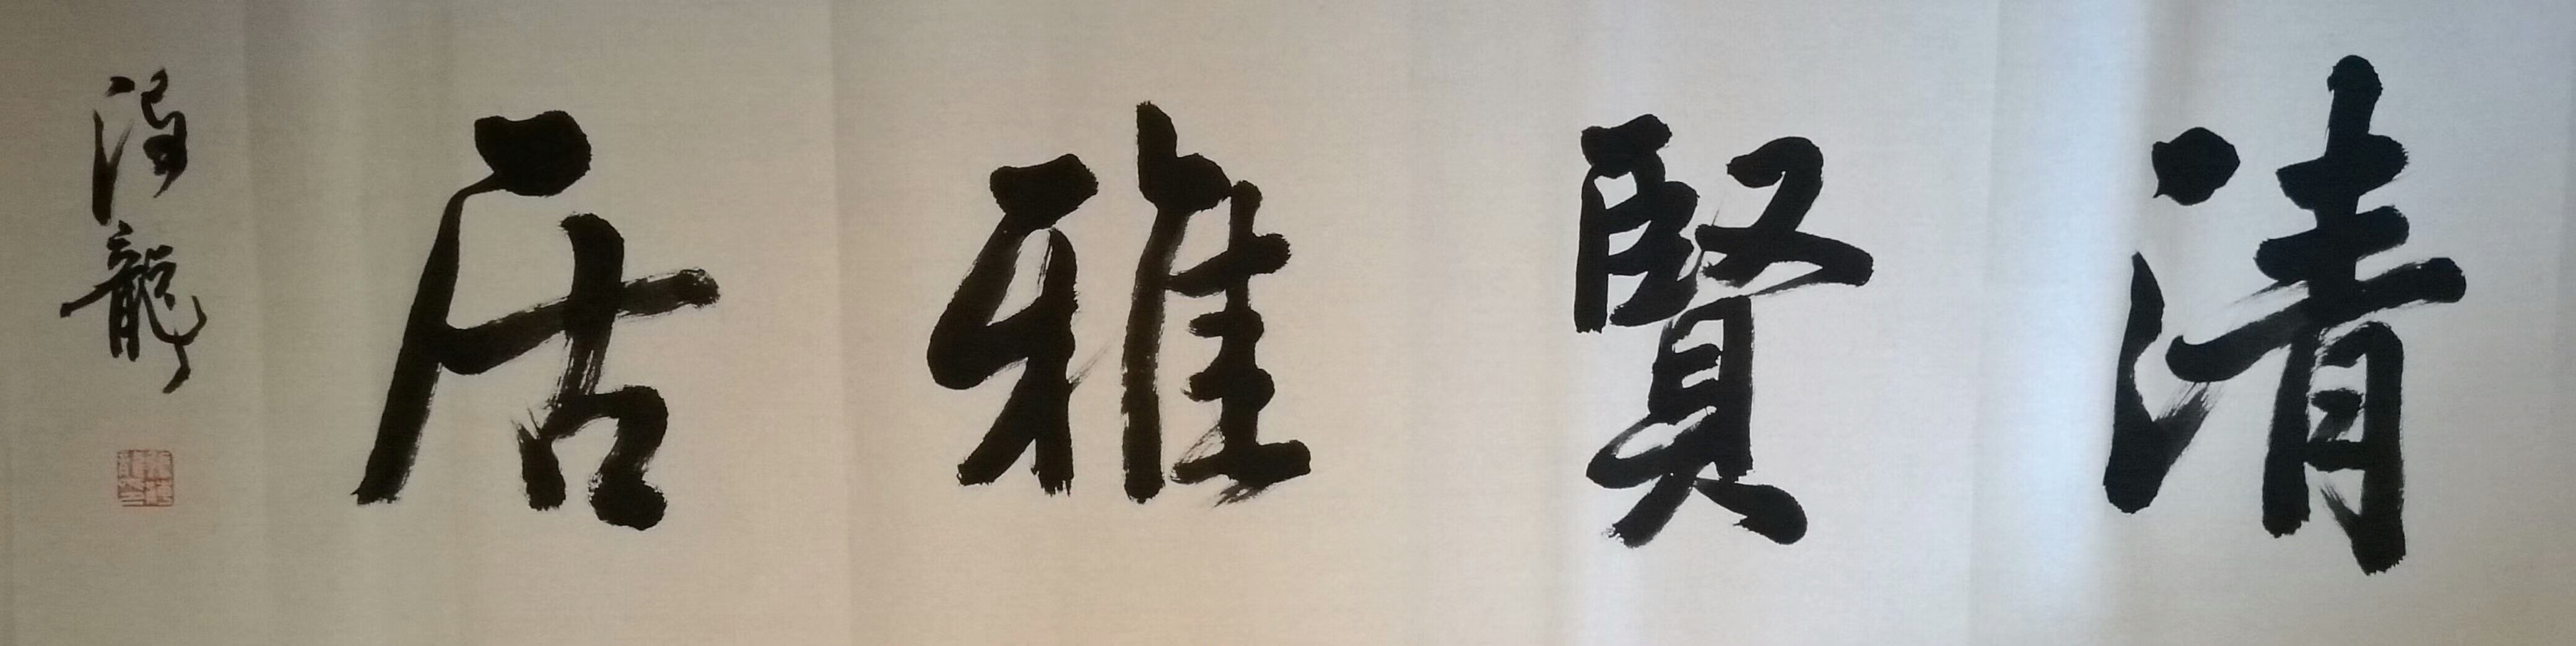 清賢雅居
龍